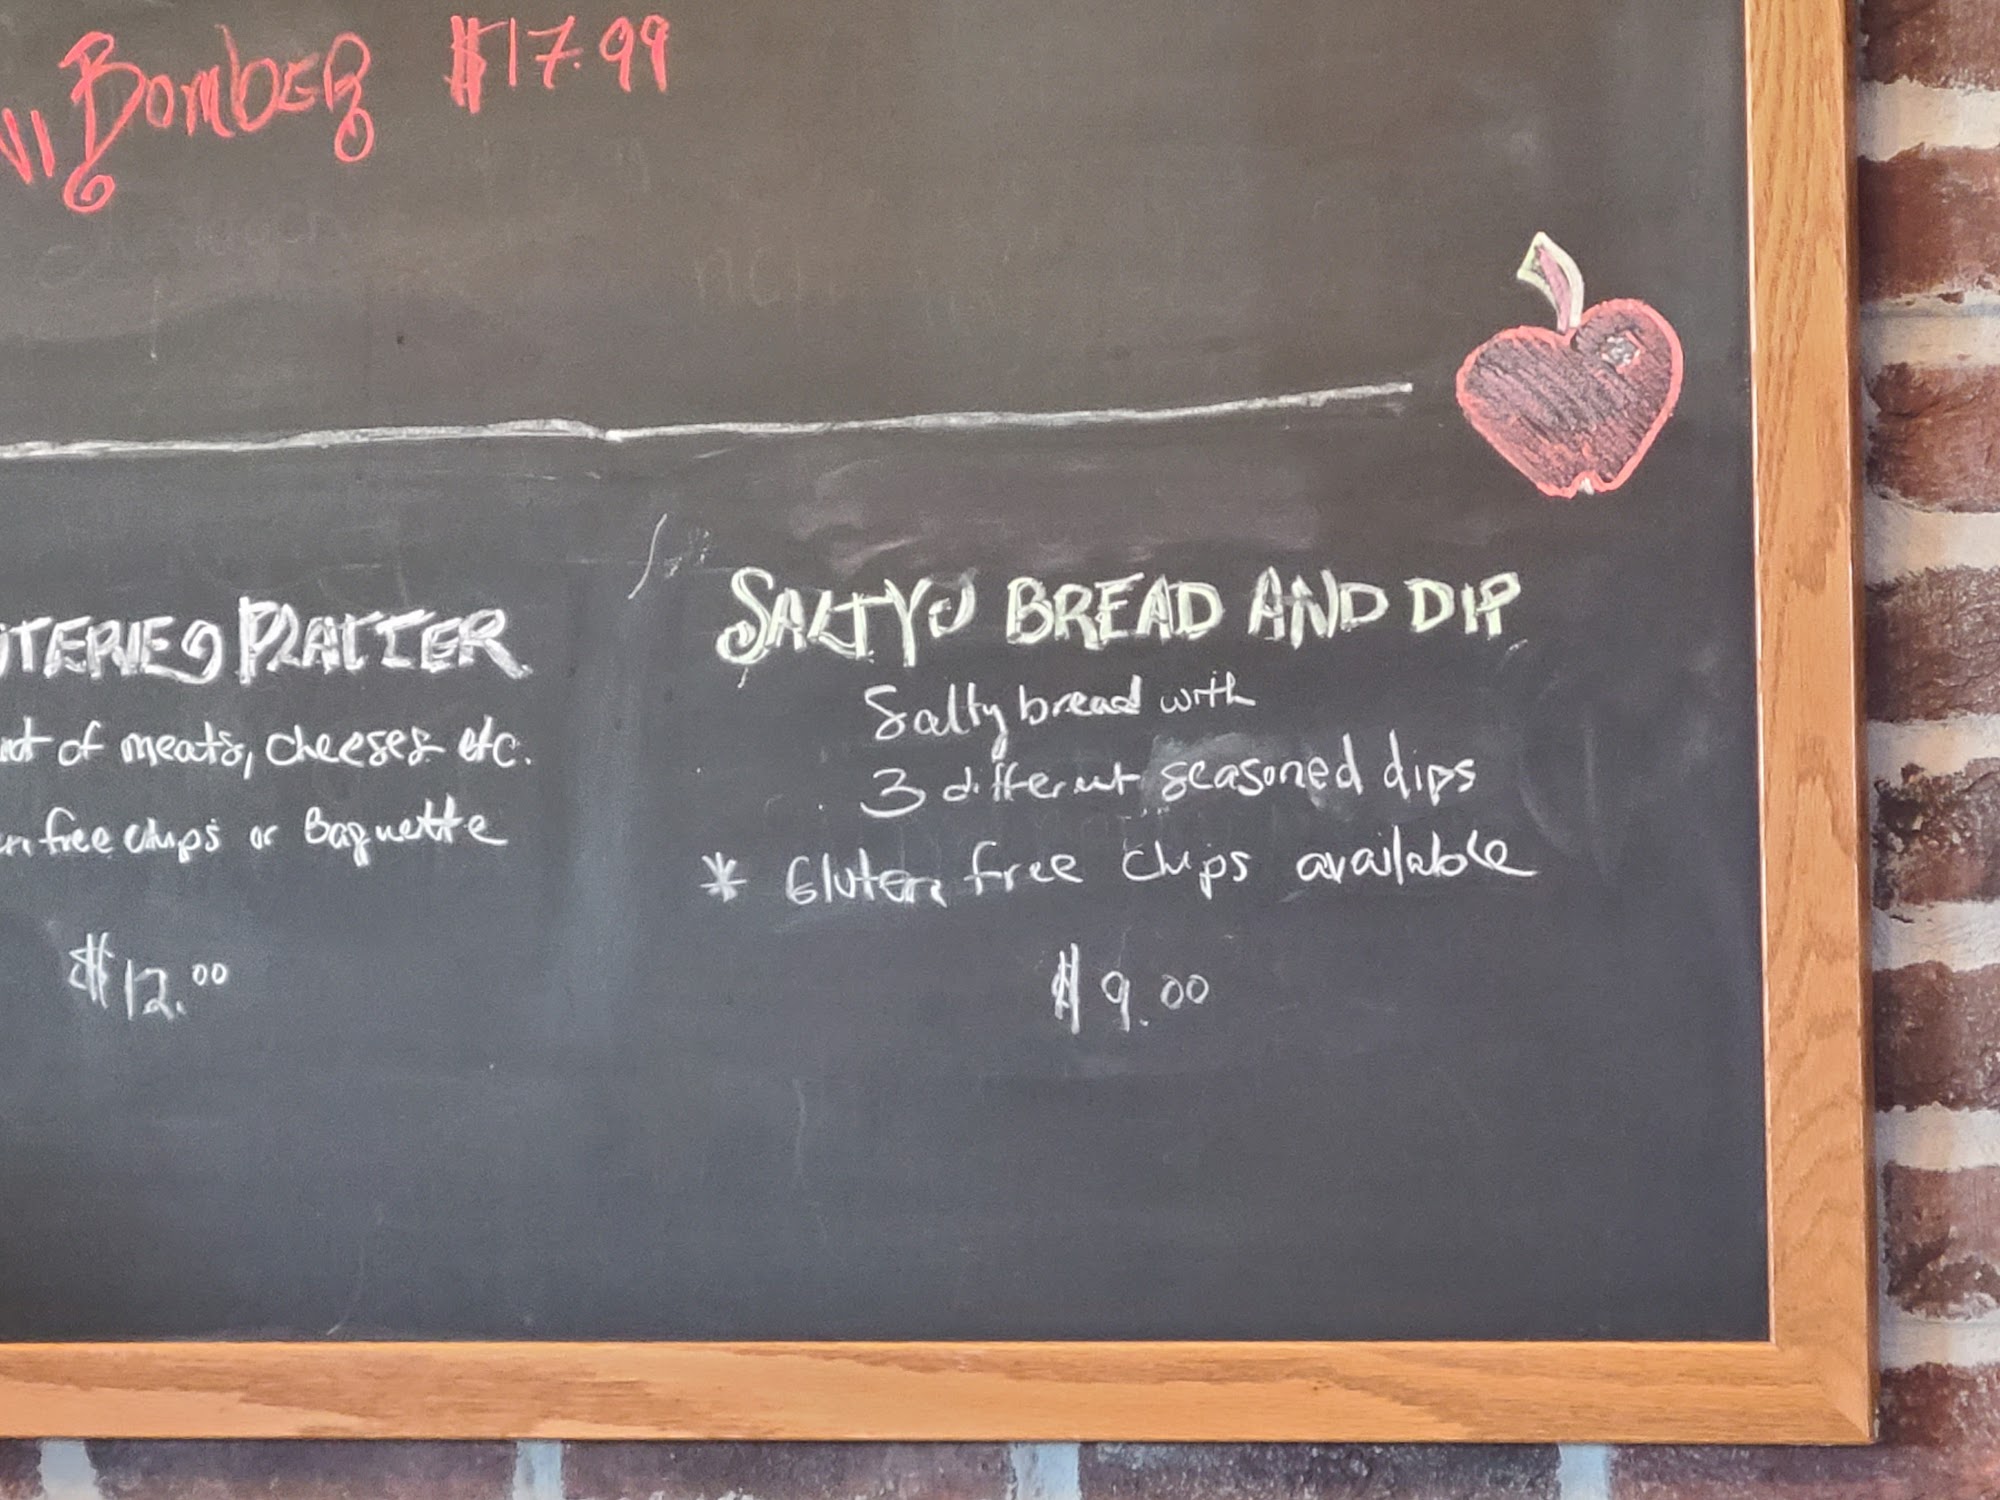 Bomber $17.99
PLATTER
SALTY BREAD AND DIP
of meats, cheeses etc.
Salty bread with
3 different seasoned dips
free chips or Baguette
* Gluten free chips available
$12.00
$9.00